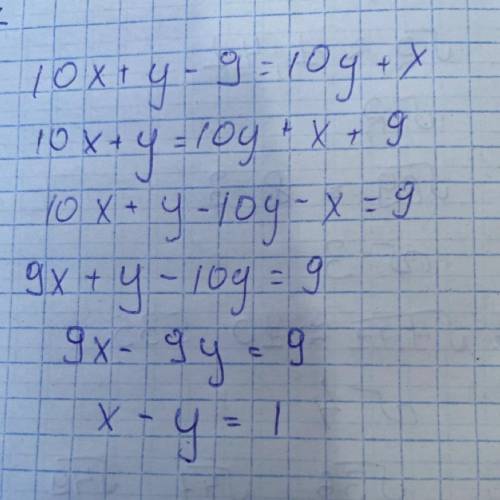 10x + y - 9 = 10y + x
10x + y = 10y + x + 9
10x + y - 10y - x = 9
9x + y - 10y = 9
9x - 9y = 9
x - y = 1